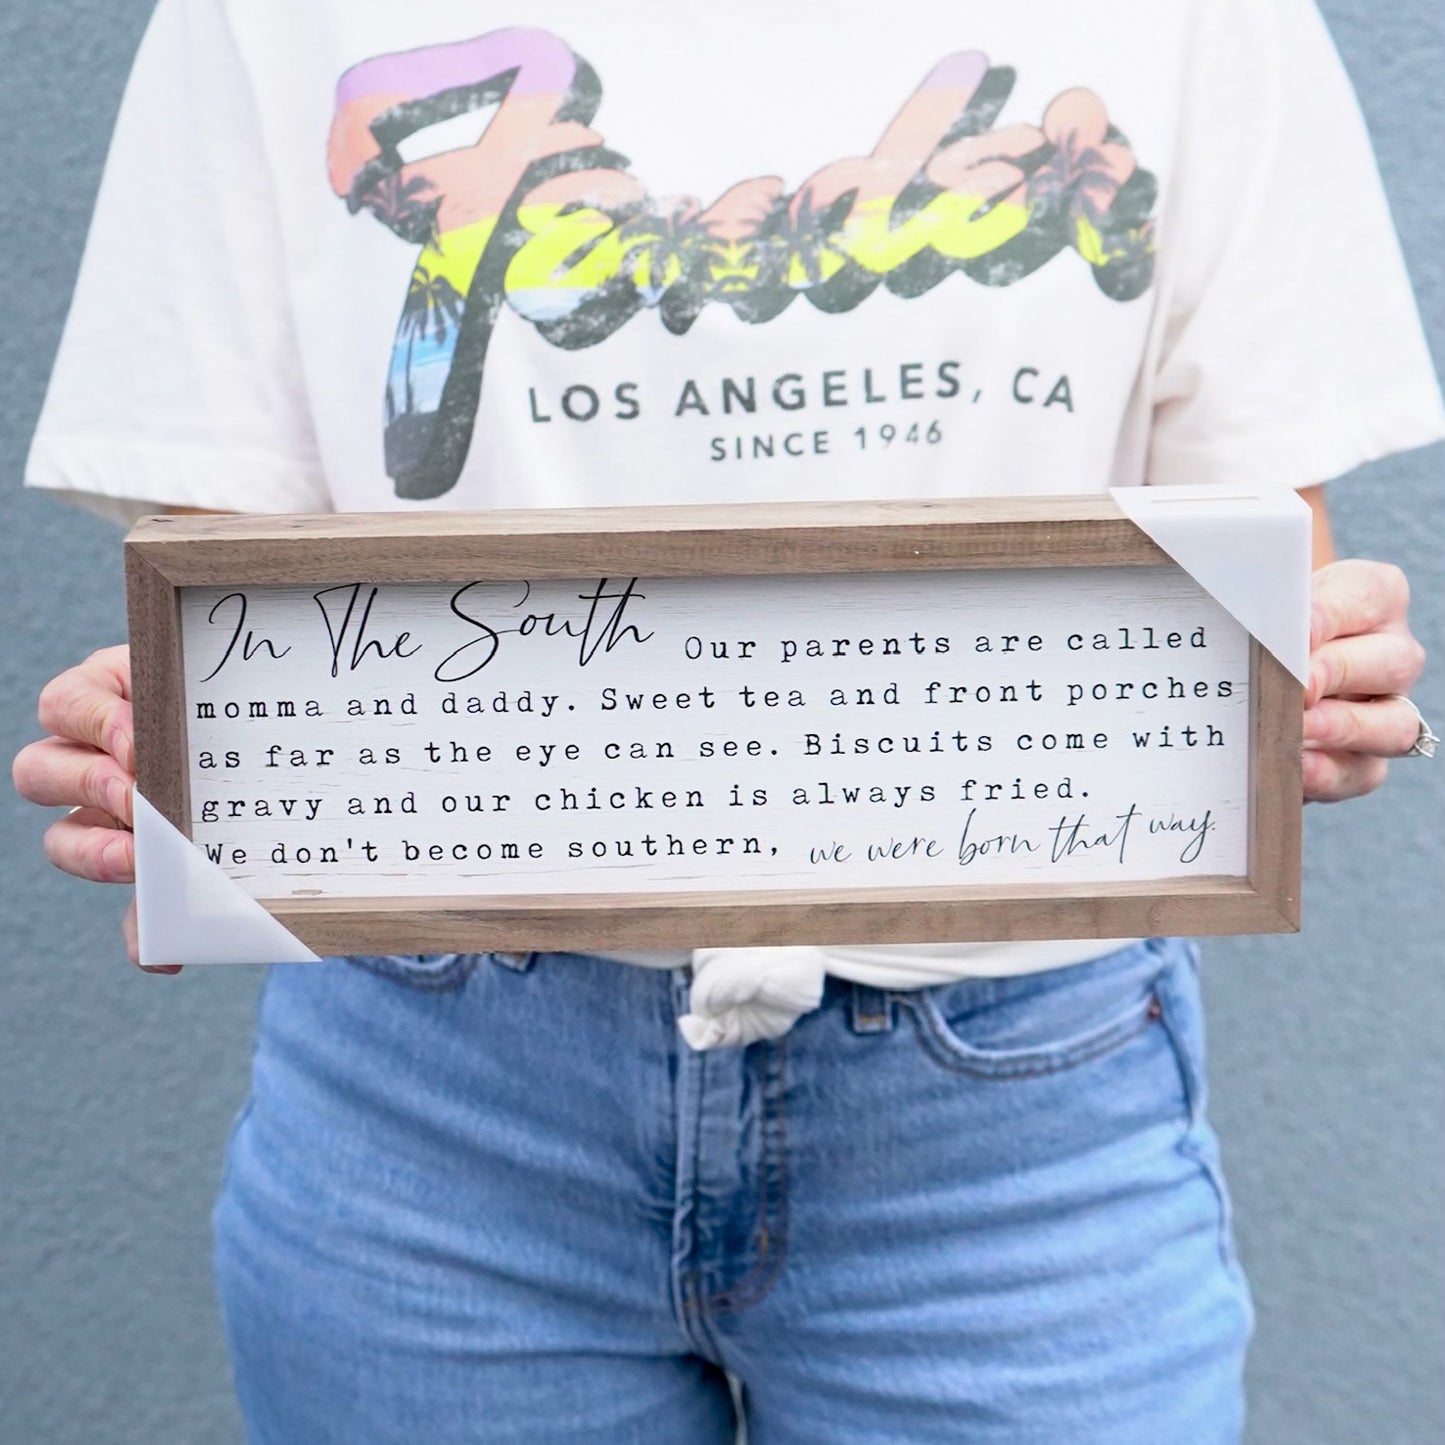 Fender
LOS ANGELES, CA
SINCE 1946
In The South Our parents are called
momma and daddy. Sweet tea and front porches
as far as the eye can see. Biscuits come with
gravy and our chicken is always fried.
We don't become southern, we were born that way.